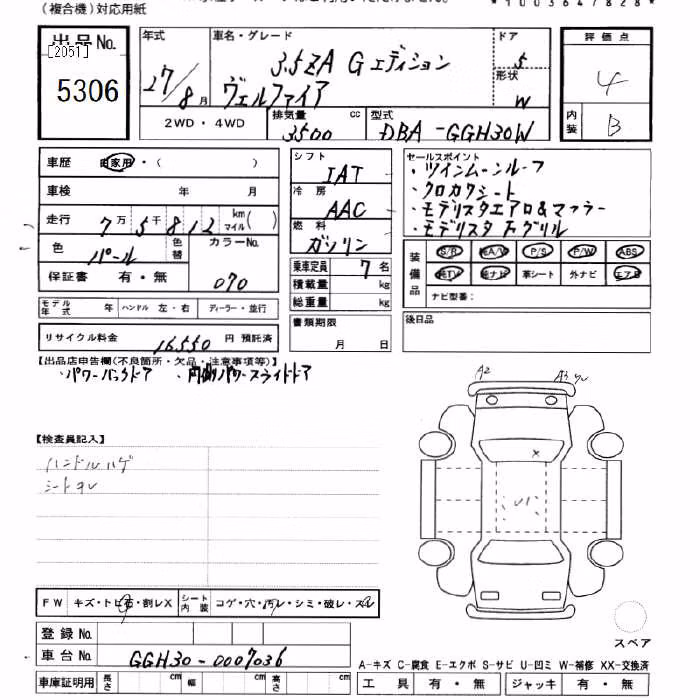 (複合機)対応用紙
*1003647828*
出品No.
[2051]
5306
年式
27/8月
車名・グレード
3.5ZA Gエディション
ヴェルファイア
ドア
5
形状
W
評価点
4
内装
B
2WD・4WD
排気量
3500
cc
型式
DBA-GGH30W
車歴 自家用・( )
車検 年 月
走行 7万5千812 km マイル( )
色 パール 色替
カラーNo.
070
保証書 有・無
シフト
IAT
冷房
AAC
燃料
ガソリン
乗車定員 7名
積載量 kg
総重量 kg
書類期限
月 日
セールスポイント
・ツインムーンルーフ
・クロカワシート
・モデリスタエアロ&マフラー
・モデリスタ Fグリル
装備品
S/R 純A/W P/S P/W ABS
純TV 純ナビ 革シート 外ナビ エアB
ナビ型番:
後日品
モデル年式 年 ハンドル 左・右 ディーラー・並行
リサイクル料金 16550 円 預託済
【出品店申告欄(不良箇所・欠品・注意事項等)】
・パワーバックドア ・両側パワースライドドア
A2
A3
【検査員記入】
ハンドルハゲ
シートスレ
FW キズ・トビ石・割レX
シート内装 コゲ・穴・汚レ・シミ・破レ・スレ
登録No.
車台No. GGH30-0007036
車庫証明用 長さ cm 幅 cm 高さ cm
スペア
A-キズ C-腐食 E-エクボ S-サビ U-凹ミ W-補修 XX-交換済
工具 有・無 ジャッキ 有・無